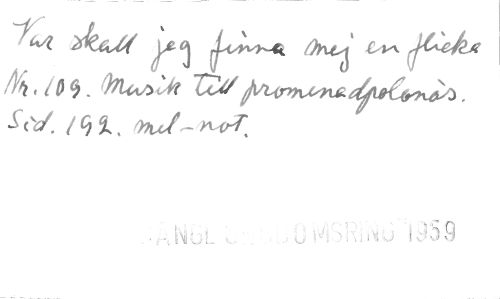 Var skall jag finna mej en flicka
Nr. 109. Musik till promenadpolonäs.
Sid. 192. mel-not.
UNGDOMSRING 1959